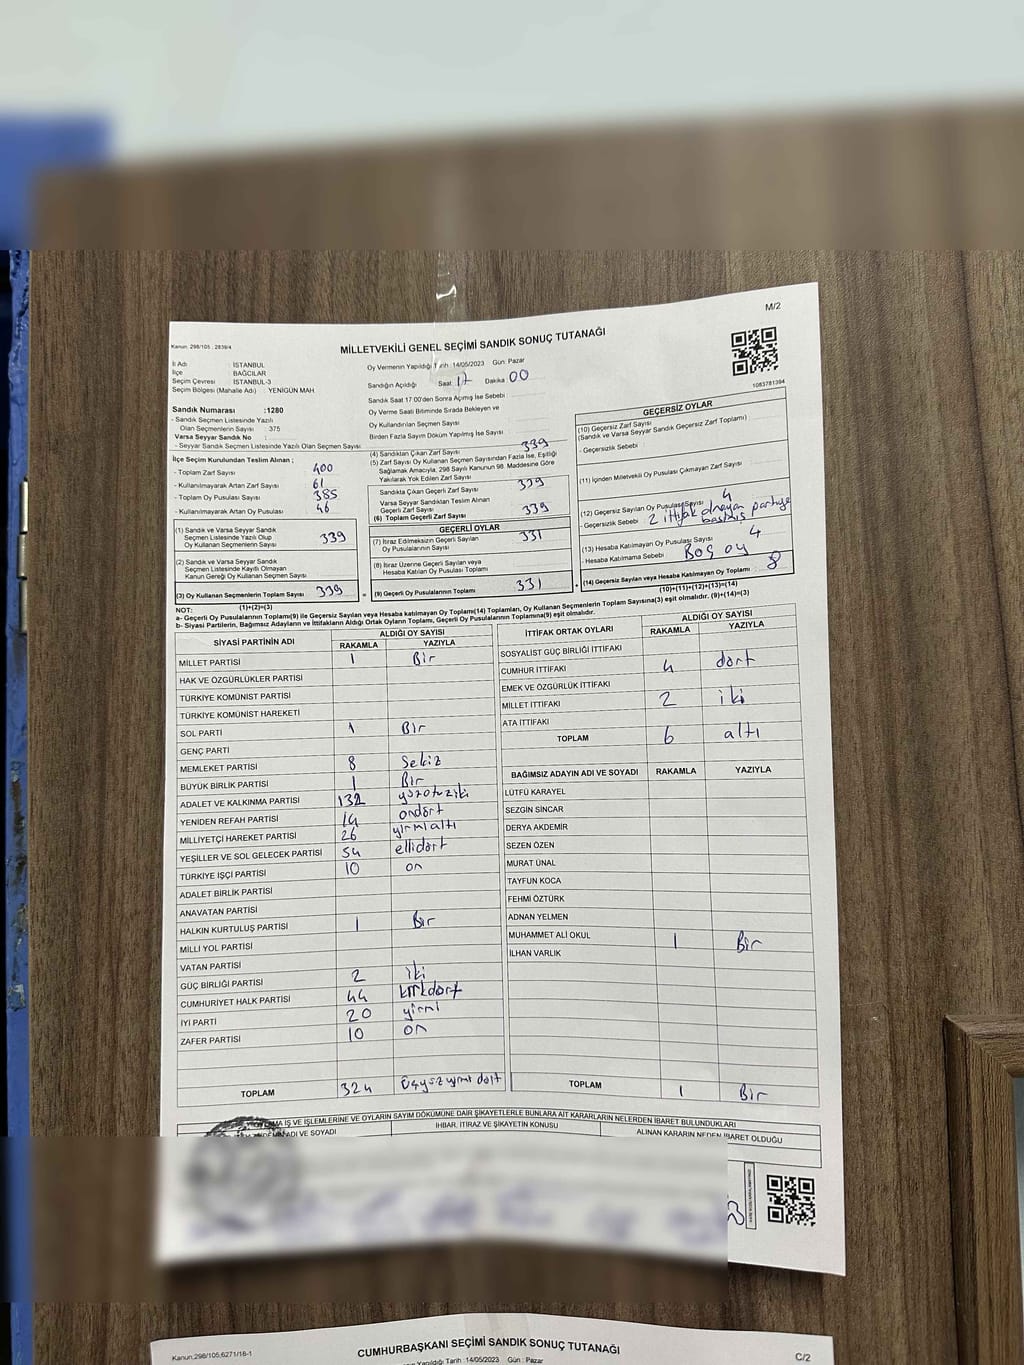 M/2
Kanun: 298/105 , 2839/4
MİLLETVEKİLİ GENEL SEÇİMİ SANDIK SONUÇ TUTANAĞI
1083781394
İl Adı : İSTANBUL
İlçe : BAĞCILAR
Seçim Çevresi : İSTANBUL-3
Seçim Bölgesi (Mahalle Adı) : YENİGÜN MAH
Sandık Numarası :1280
- Sandık Seçmen Listesinde Yazılı
Olan Seçmenlerin Sayısı : 375
Varsa Seyyar Sandık No :
- Seyyar Sandık Seçmen Listesinde Yazılı Olan Seçmen Sayısı :
İlçe Seçim Kurulundan Teslim Alınan ;
- Toplam Zarf Sayısı 400
- Kullanılmayarak Artan Zarf Sayısı 61
- Toplam Oy Pusulası Sayısı 385
- Kullanılmayarak Artan Oy Pusulası 46
(1) Sandık ve Varsa Seyyar Sandık
Seçmen Listesinde Yazılı Olup
Oy Kullanan Seçmenlerin Sayısı 339
(2) Sandık ve Varsa Seyyar Sandık
Seçmen Listesinde Kayıtlı Olmayan
Kanun Gereği Oy Kullanan Seçmen Sayısı
(3) Oy Kullanan Seçmenlerin Toplam Sayısı 339
(1)+(2)=(3)
Oy Vermenin Yapıldığı Tarih :14/05/2023 Gün: Pazar
Sandığın Açıldığı Saat 17 Dakika 00
Sandık Saat 17'00'den Sonra Açılmış İse Sebebi
Oy Verme Saati Bitiminde Sırada Bekleyen ve
Oy Kullandırılan Seçmen Sayısı
Birden Fazla Sayım Döküm Yapılmış İse Sayısı
(4) Sandıktan Çıkan Zarf Sayısı 339
(5) Zarf Sayısı Oy Kullanan Seçmen Sayısından Fazla İse, Eşitliği
Sağlamak Amacıyla, 298 Sayılı Kanunun 98. Maddesine Göre
Yakılarak Yok Edilen Zarf Sayısı
Sandıkta Çıkan Geçerli Zarf Sayısı 339
Varsa Seyyar Sandıktan Teslim Alınan
Geçerli Zarf Sayısı
(6) Toplam Geçerli Zarf Sayısı 339
GEÇERLİ OYLAR
(7) İtiraz Edilmeksizin Geçerli Sayılan
Oy Pusulalarının Sayısı 331
(8) İtiraz Üzerine Geçerli Sayılan veya
Hesaba Katılan Oy Pusulası Toplamı
(9) Geçerli Oy Pusulalarının Toplamı 331
GEÇERSİZ OYLAR
(10) Geçersiz Zarf Sayısı
(Sandık ve Varsa Seyyar Sandık Geçersiz Zarf Toplamı)
- Geçersizlik Sebebi
(11) İçinden Milletvekili Oy Pusulası Çıkmayan Zarf Sayısı
(12) Geçersiz Sayılan Oy Pusulası Sayısı 4
- Geçersizlik Sebebi 2 ittifak olmayan partiye
basılmış
(13) Hesaba Katılmayan Oy Pusulası Sayısı 4
- Hesaba Katılmama Sebebi Boş oy
(14) Geçersiz Sayılan veya Hesaba Katılmayan Oy Toplamı 8
(10)+(11)+(12)+(13)=(14)
NOT:
a- Geçerli Oy Pusulalarının Toplamı(9) ile Geçersiz Sayılan veya Hesaba katılmayan Oy Toplamı(14) Toplamları, Oy Kullanan Seçmenlerin Toplam Sayısına(3) eşit olmalıdır. (9)+(14)=(3)
b- Siyasi Partilerin, Bağımsız Adayların ve İttifakların Aldığı Ortak Oyların Toplamı, Geçerli Oy Pusulalarının Toplamına(9) eşit olmalıdır.
SİYASİ PARTİNİN ADI ALDIĞI OY SAYISI
RAKAMLA YAZIYLA
MİLLET PARTİSİ 1 Bir
HAK VE ÖZGÜRLÜKLER PARTİSİ
TÜRKİYE KOMÜNİST PARTİSİ
TÜRKİYE KOMÜNİST HAREKETİ
SOL PARTİ 1 Bir
GENÇ PARTİ
MEMLEKET PARTİSİ 8 Sekiz
BÜYÜK BİRLİK PARTİSİ 1 Bir
ADALET VE KALKINMA PARTİSİ 132 yüzotuziki
YENİDEN REFAH PARTİSİ 14 ondört
MİLLİYETÇİ HAREKET PARTİSİ 26 yirmialtı
YEŞİLLER VE SOL GELECEK PARTİSİ 54 ellidört
TÜRKİYE İŞÇİ PARTİSİ 10 on
ADALET BİRLİK PARTİSİ
ANAVATAN PARTİSİ
HALKIN KURTULUŞ PARTİSİ 1 Bir
MİLLİ YOL PARTİSİ
VATAN PARTİSİ
GÜÇ BİRLİĞİ PARTİSİ 2 iki
CUMHURİYET HALK PARTİSİ 44 kırkdört
İYİ PARTİ 20 yirmi
ZAFER PARTİSİ 10 on
TOPLAM 324 Üçyüzyirmi dört
İTTİFAK ORTAK OYLARI ALDIĞI OY SAYISI
RAKAMLA YAZIYLA
SOSYALİST GÜÇ BİRLİĞİ İTTİFAKI
CUMHUR İTTİFAKI 4 dört
EMEK VE ÖZGÜRLÜK İTTİFAKI
MİLLET İTTİFAKI 2 iki
ATA İTTİFAKI
TOPLAM 6 altı
BAĞIMSIZ ADAYIN ADI VE SOYADI RAKAMLA YAZIYLA
LÜTFÜ KARAYEL
SEZGİN SİNCAR
DERYA AKDEMİR
SEZEN ÖZEN
MURAT ÜNAL
TAYFUN KOCA
FEHMİ ÖZTÜRK
ADNAN YELMEN
MUHAMMET ALİ OKUL 1 Bir
İLHAN VARLIK
TOPLAM 1 Bir
İŞ VE İŞLEMLERİNE VE OYLARIN SAYIM DÖKÜMÜNE DAİR ŞİKAYETLERLE BUNLARA AİT KARARLARIN NELERDEN İBARET BULUNDUKLARI
ADI VE SOYADI İHBAR, İTİRAZ VE ŞİKAYETİN KONUSU ALINAN KARARIN NEDEN İBARET OLDUĞU
Kanun:298/105,6271/18-1
CUMHURBAŞKANI SEÇİMİ SANDIK SONUÇ TUTANAĞI
C/2
Yapıldığı Tarih :14/05/2023 Gün : Pazar